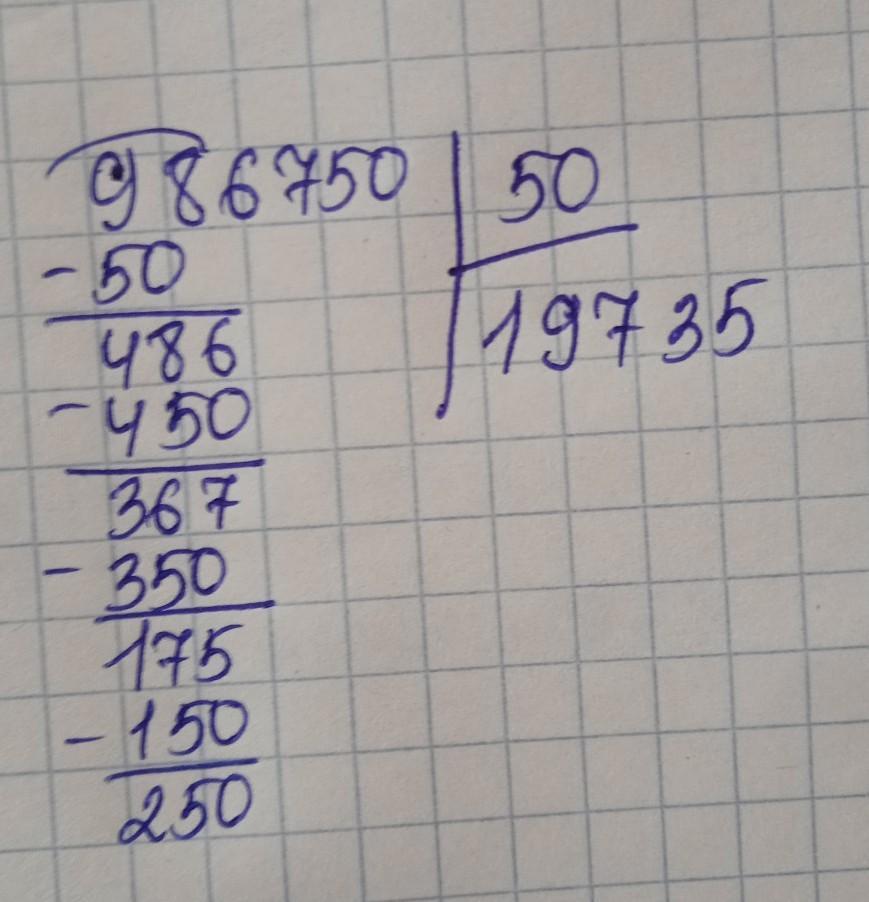 986750 50
- 50 19735
486
- 450
367
- 350
175
- 150
250